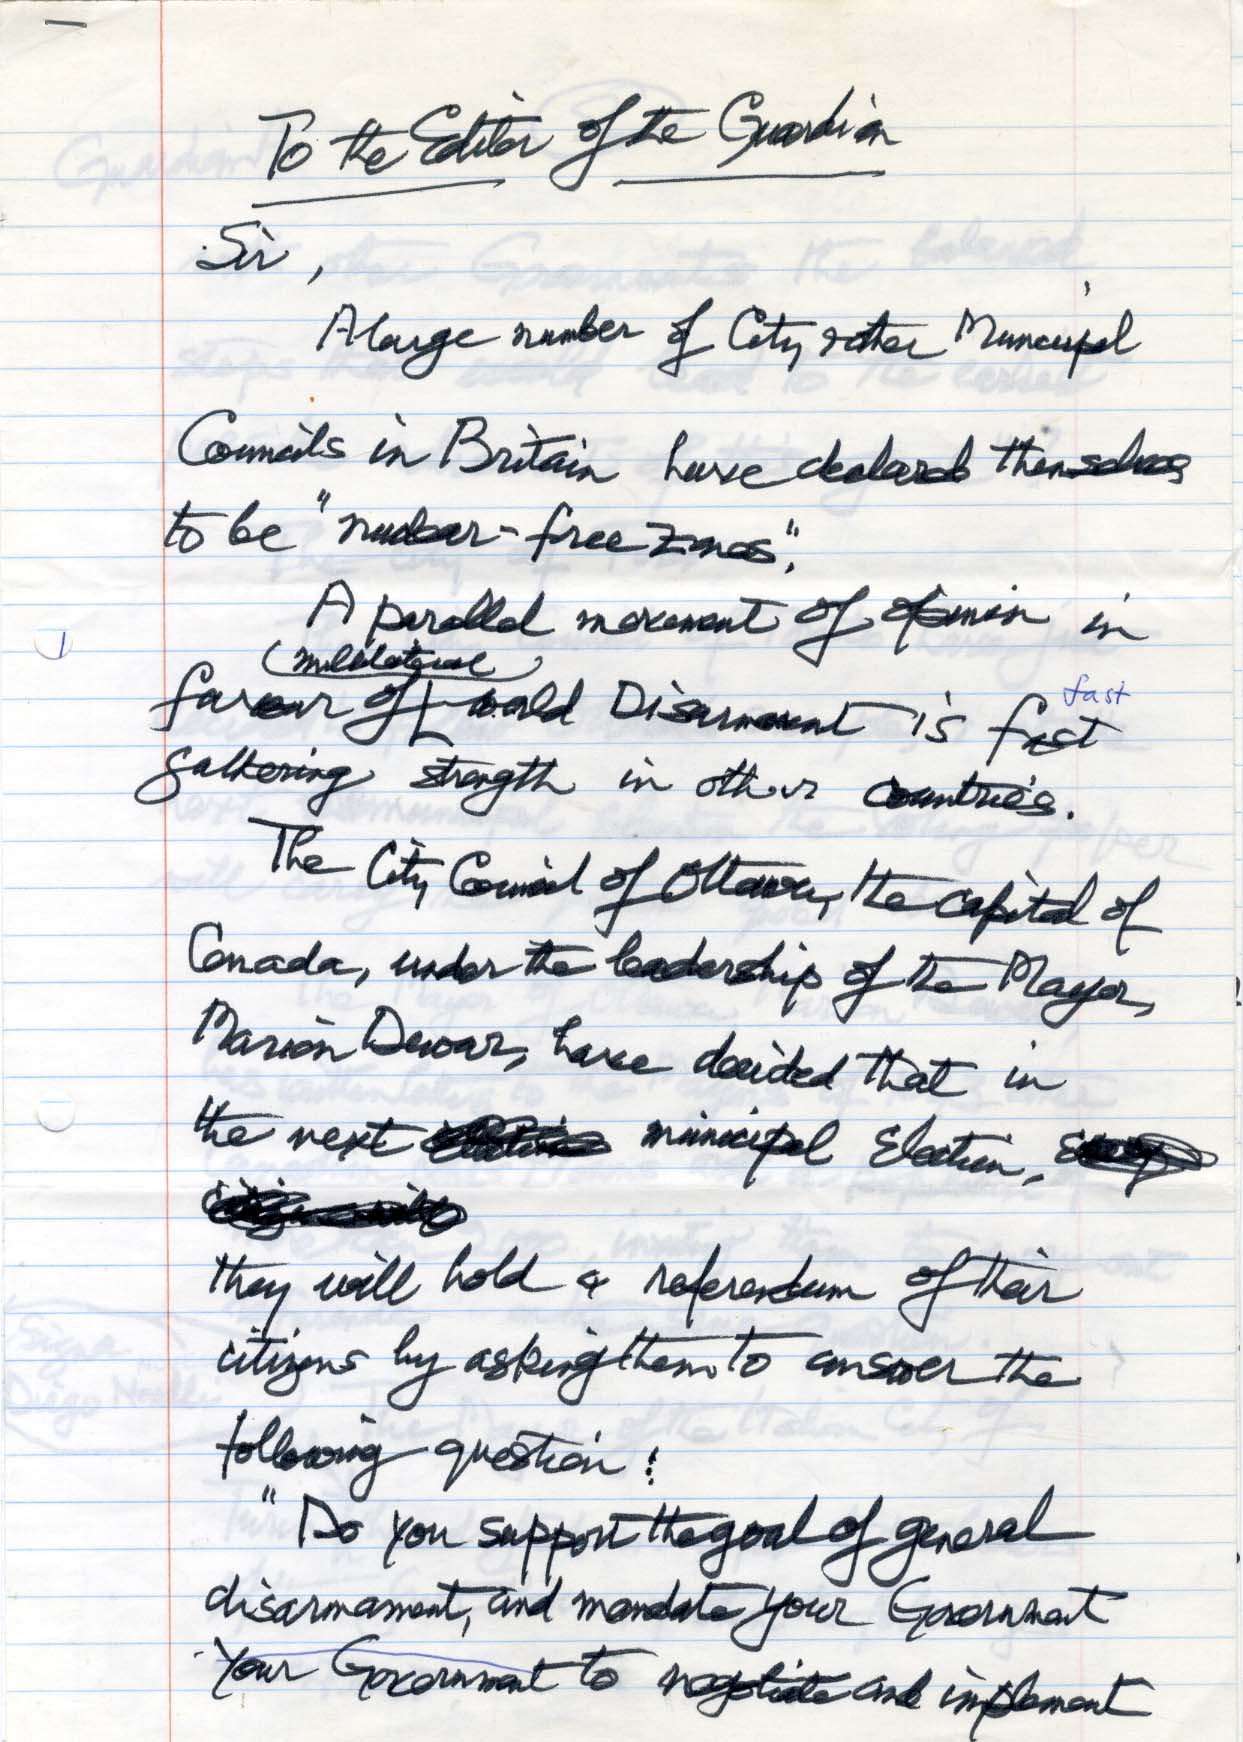 To the Editor of the Guardian
Sir,
A large number of City & other Municipal
Councils in Britain have declared themselves
to be "nuclear-free zones".
A parallel movement of opinion in
(multilateral)
favour of world Disarmament is fast fast
gathering strength in other countries.
The City Council of Ottawa, the capital of
Canada, under the leadership of the Mayor,
Marion Dewar, have decided that in
the next municipal election,
they will hold a referendum of their
citizens by asking them to answer the
following question:
"Do you support the goal of general
disarmament, and mandate your Government
your Government to negotiate and implement